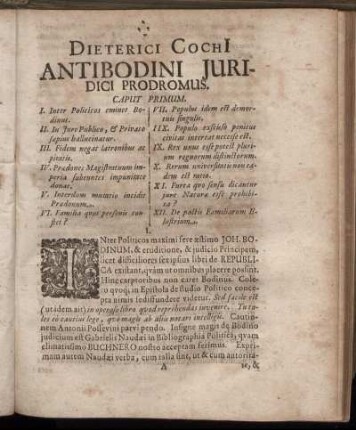 DIETERICI COCHI
ANTIBODINI JURI-
DICI PRODROMUS.
CAPUT PRIMUM.
I. Inter Politicos eminet Bo-
dinus.
II. In Jure Publico, & Privato
sæpius hallucinatur.
III. Fidem negat latronibus ac
piratis.
IV. Prædones Magistratuum im-
peria subeuntes impunitate
donat.
V. Interdum mutatio incidit
V. Familia quot personis con-
stet?
VII. Populus idem est demor-
tuis singulis,
IIX. Populo exstincto penitus
civitas intereat necesse est.
IX. Rex unus esse potest pluri-
um regnorum distinctorum.
X. Rerum universitati non ea-
dem est ratio.
XI. Furta quo sensu dicantur
jure Naturæ esse prohibi-
ta?
XII. De pactis Familiarum Il-
lustrium.
I.
INter Politicos maximi fere æstimo JOH. BO-
DINUM, & eruditione, & judicio Principem,
licet difficiliores set ipsus libri de REPUBLI-
CA existant, quàm ut omnibus placere possint.
Hinc carptoribus non caret Bodinus. Colero
quoq; in Epistola de studio Politico conce-
pta nimis sese diffundere videtur. Sed facile est
(ut idem ait) in operoso libro quod reprehendas invenire. Tu ta-
les eò cautius lege, quo magis ab aliis notari intelligis. Cautio-
nem Antonii Possevini parvi pendo. Insigne magis de Bodino
judicium est Gabrielis Naudæi in Bibliographia Politica, quam
clarissimo BUCHNERO nostro acceptam ferimus. Expri-
mam autem Naudæi verba, cum talia sint, ut & cum autorita-
A te, &